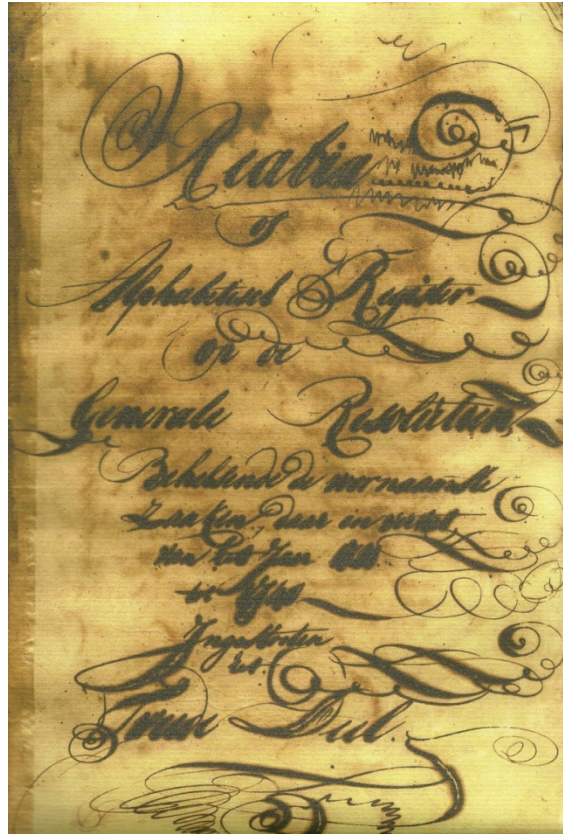 Realia
of
Alphabetisch Register
op de
Generale Resolutien,
Behelsende de voornaamste
Zaaken, daar in vervat
van het Jaar
tot
Ingeslooten
Deel.